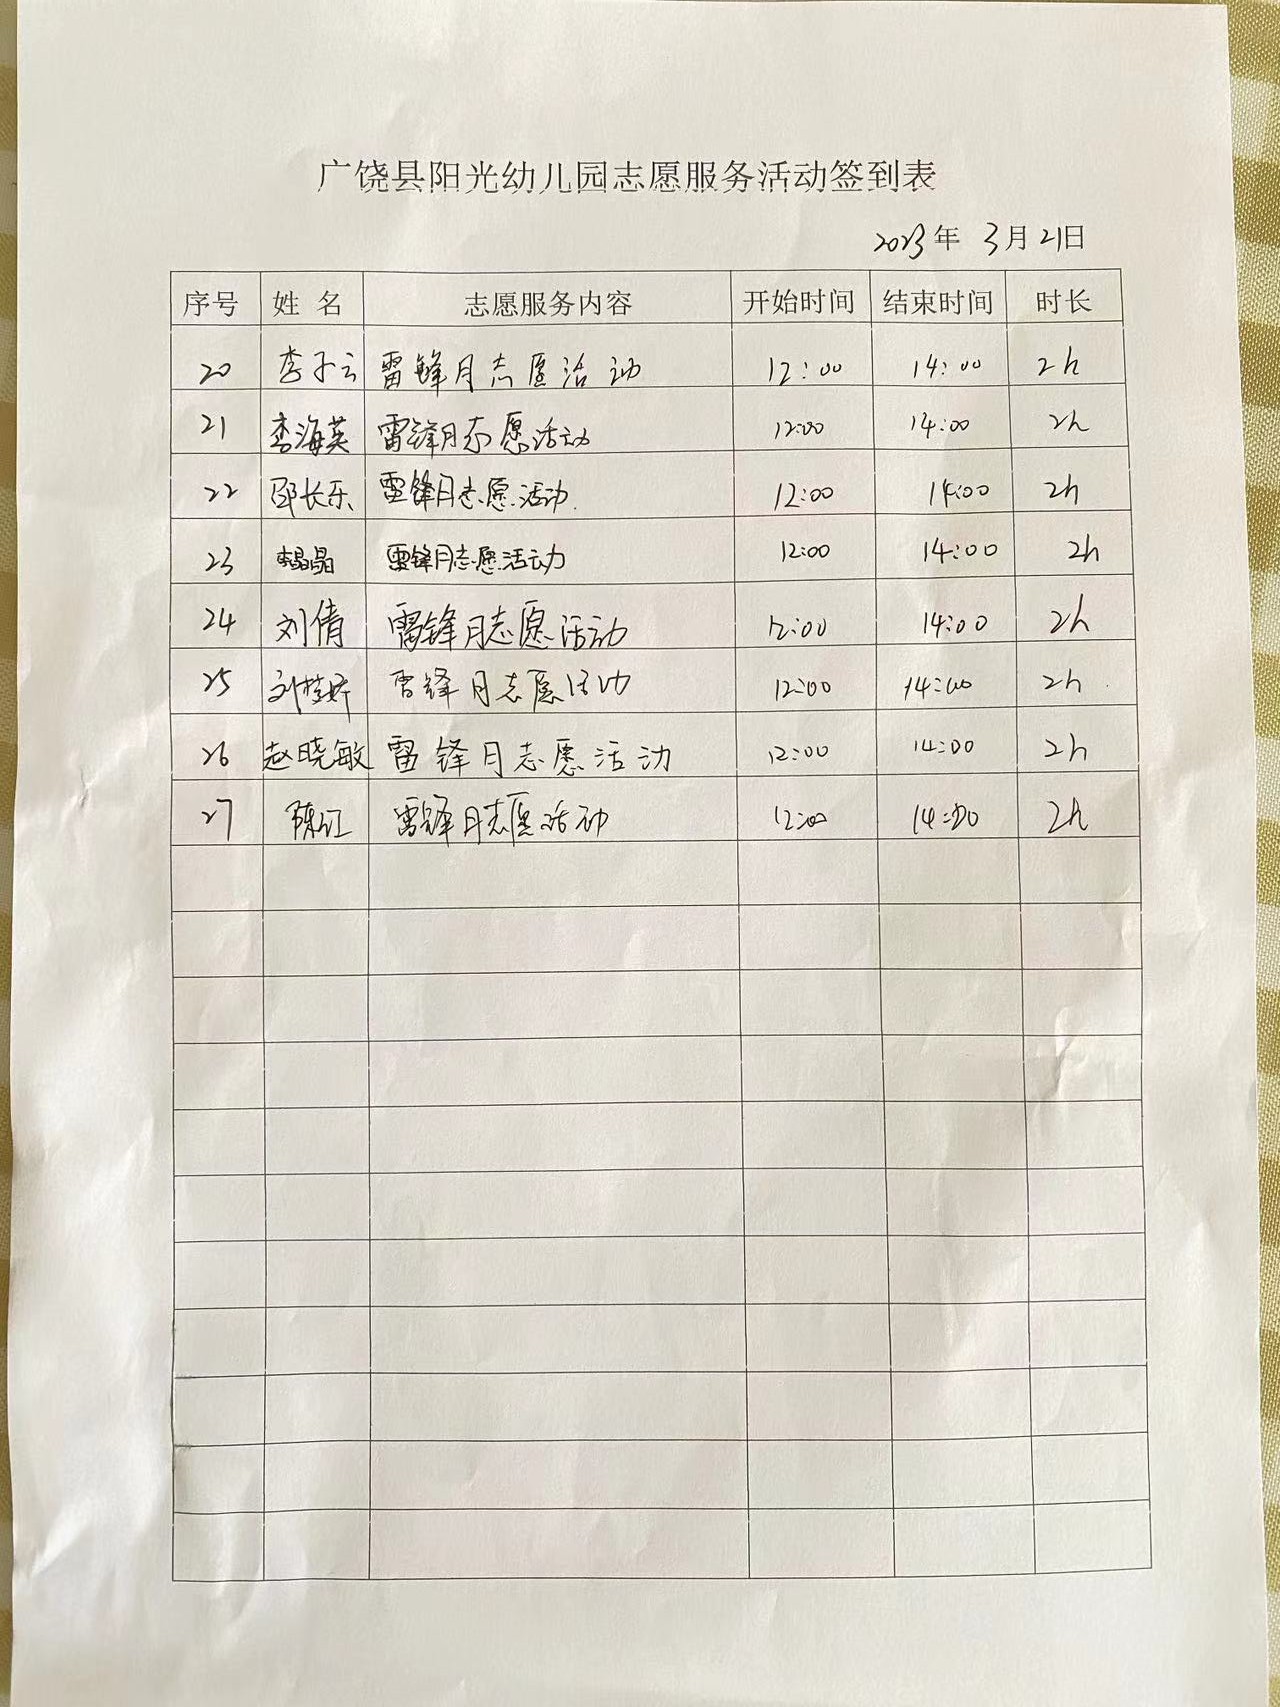 广饶县阳光幼儿园志愿服务活动签到表
2023年 3月21日
序号 姓 名 志愿服务内容 开始时间 结束时间 时长
20 李子云 雷锋月志愿活动 12:00 14:00 2h
21 李海英 雷锋月志愿活动 12:00 14:00 2h
22 邵长乐 雷锋月志愿活动 12:00 14:00 2h
23 李晶晶 雷锋月志愿活动 12:00 14:00 2h
24 刘倩 雷锋月志愿活动 12:00 14:00 2h
25 雷锋月志愿活动 12:00 14:00 2h
26 赵晓敏 雷锋月志愿活动 12:00 14:00 2h
27 陈红 雷锋月志愿活动 12:00 14:00 2h